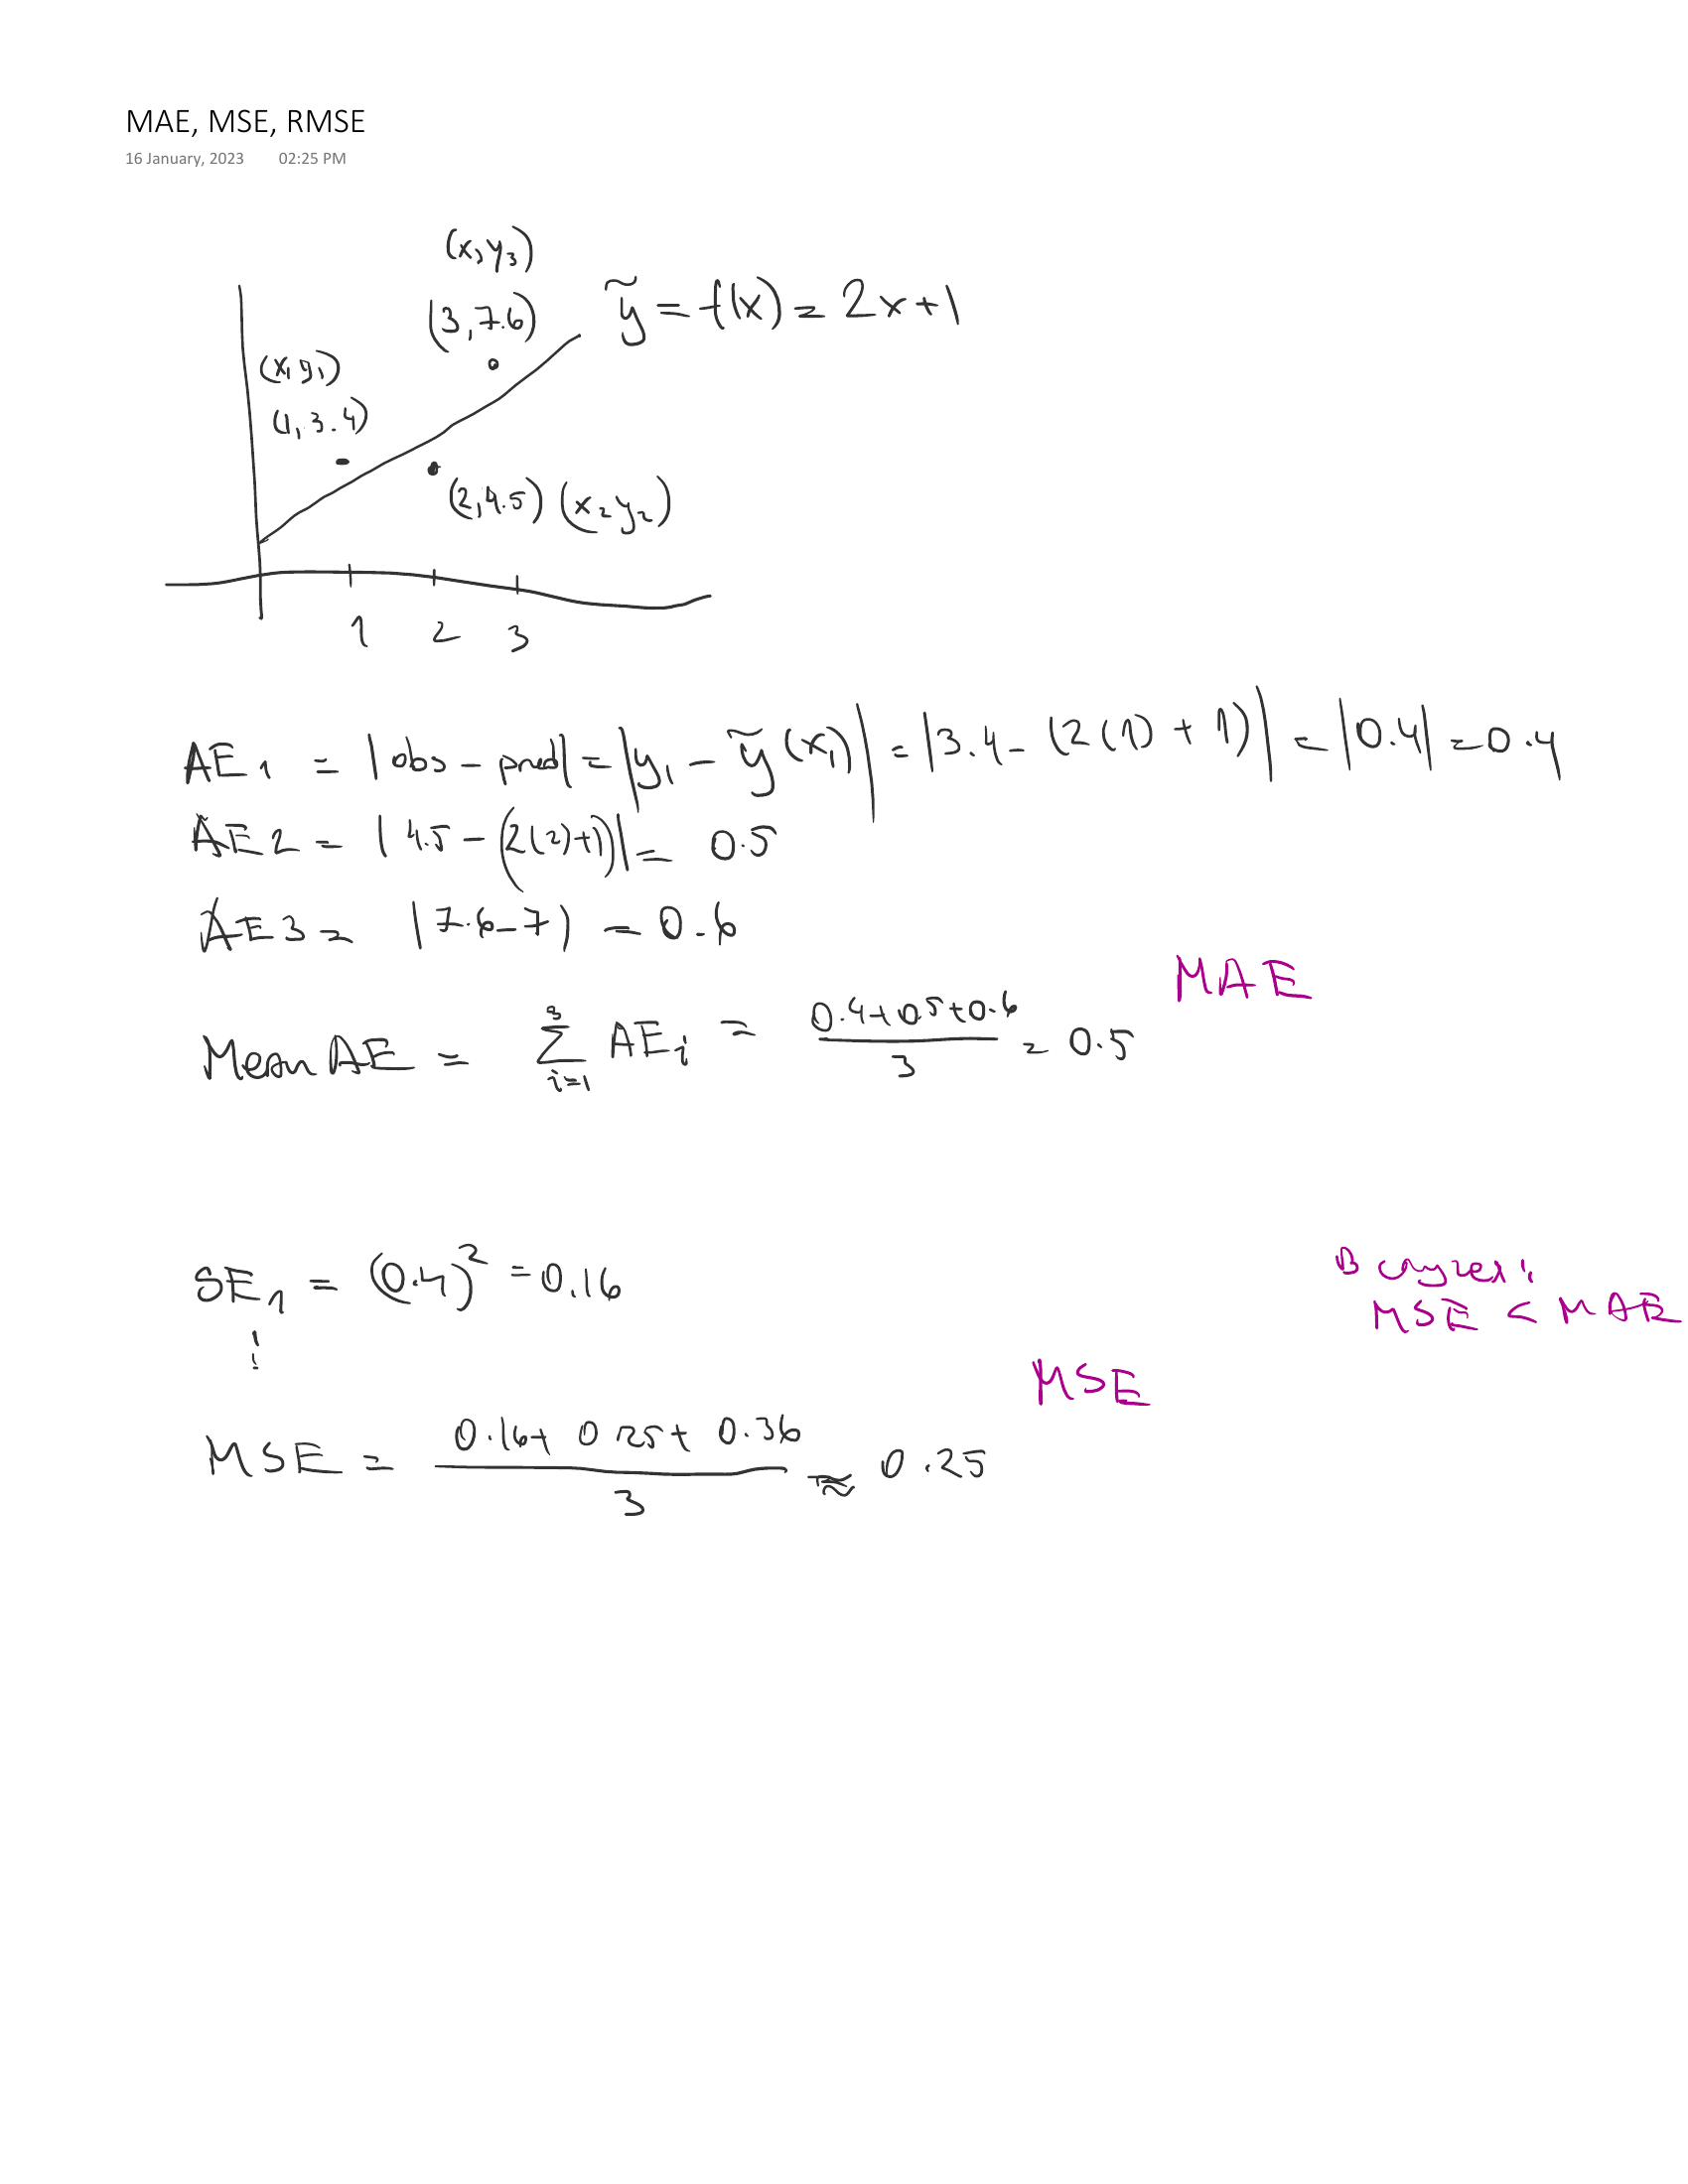 MAE, MSE, RMSE
16 January, 2023 02:25 PM
(x, y₃)
(3, 7.6)
ỹ = f(x) = 2x+1
(x₁ y₁)
(1, 3.4)
(2, 4.5) (x₂ y₂)
1 2 3
AE₁ = |obs - pred| = |y₁ - ỹ(x₁)| = |3.4 - (2(1) + 1)| = |0.4| = 0.4
AE2 = |4.5 - (2(2)+1)| = 0.5
AE3 = |7.6-7| = 0.6
MAE
Mean AE = ∑_{i=1}^{3} AE_i = (0.4+0.5+0.6)/3 = 0.5
SE₁ = (0.4)² = 0.16
⋮
В случез:
MSE < MAE
MSE
MSE = (0.16+ 0.25+ 0.36)/3 ≈ 0.25